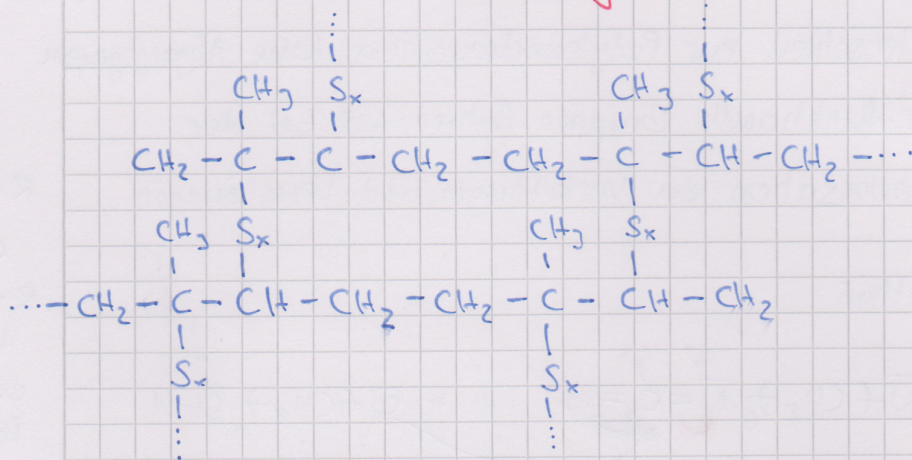 ⋮ ⋮
CH₃ Sₓ CH₃ Sₓ
CH₂ – C – C – CH₂ – CH₂ – C – CH – CH₂ – ···
CH₃ Sₓ CH₃ Sₓ
··· – CH₂ – C – CH – CH₂ – CH₂ – C – CH – CH₂
Sₓ Sₓ
⋮ ⋮